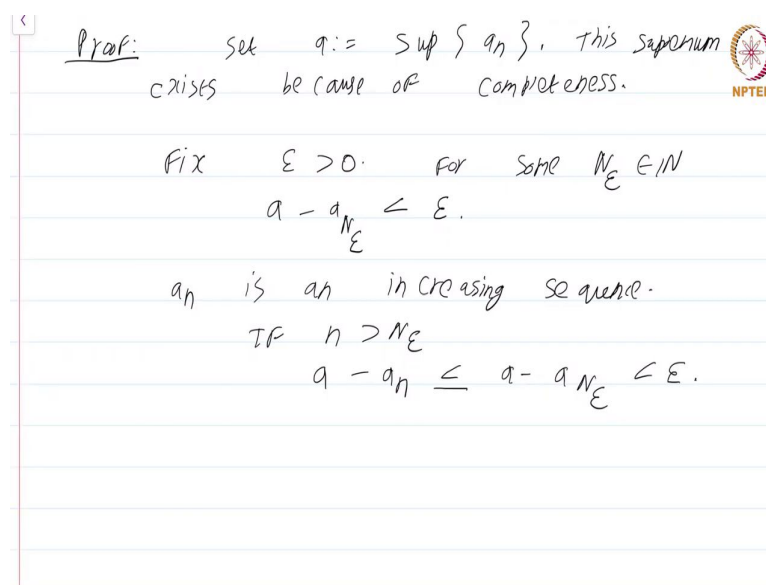 Proof: Set a := sup { an }. This supremum
exists because of completeness.
NPTEL
Fix ε > 0. For some Nε ∈ ℕ
a - aNε < ε.
an is an increasing sequence.
If n > Nε
a - an ≤ a - aNε < ε.